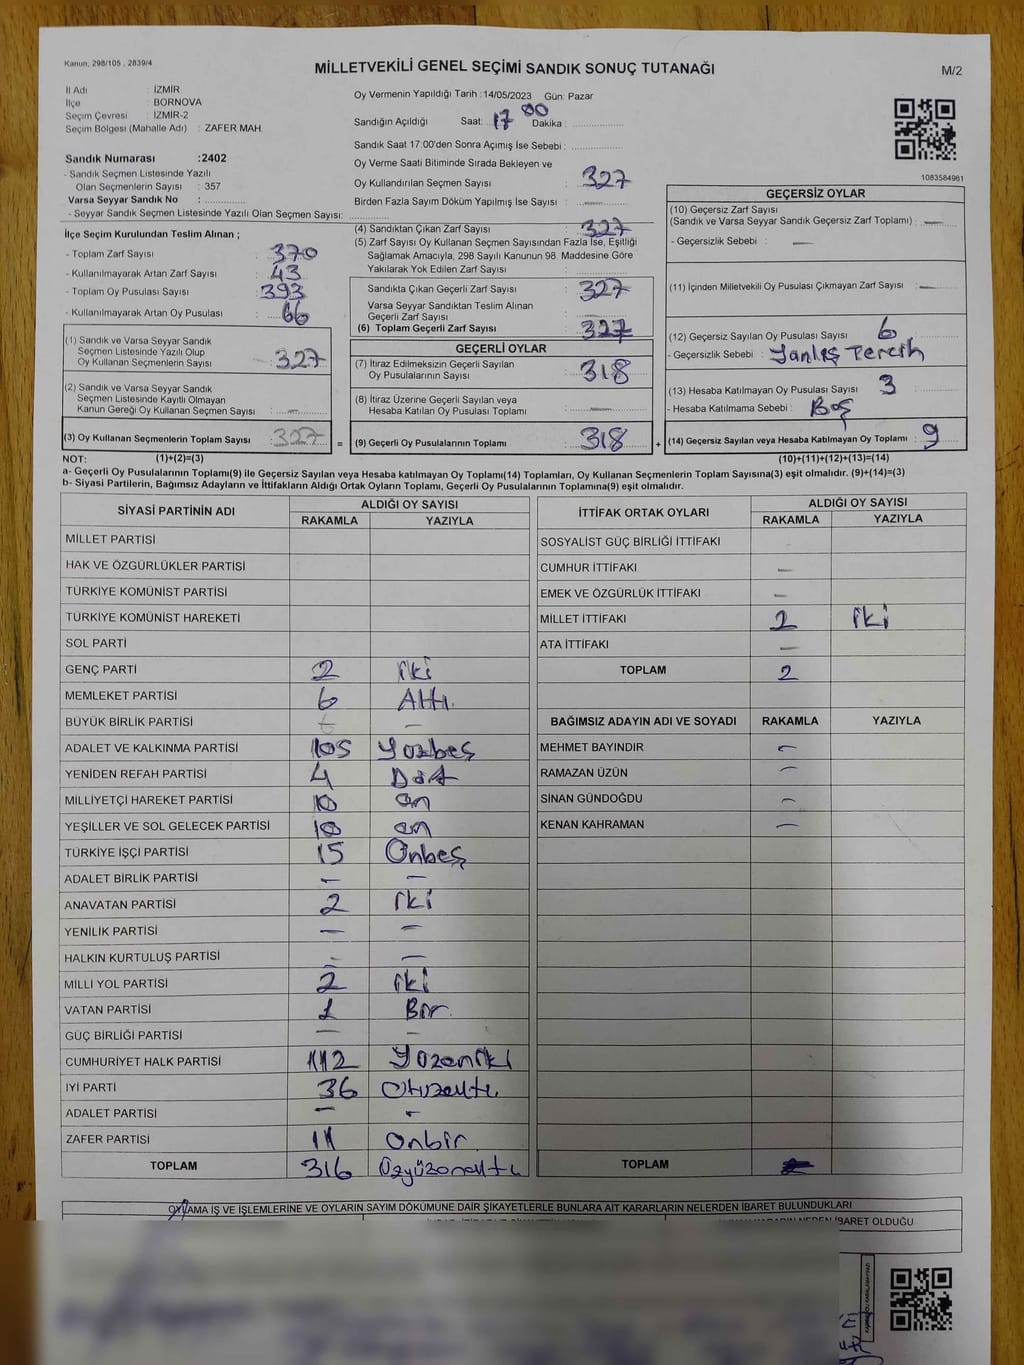 Kanun, 298/105 , 2839/4
MİLLETVEKİLİ GENEL SEÇİMİ SANDIK SONUÇ TUTANAĞI
M/2
İl Adı : İZMİR
İlçe : BORNOVA
Seçim Çevresi : İZMİR-2
Seçim Bölgesi (Mahalle Adı) : ZAFER MAH.
Sandık Numarası :2402
- Sandık Seçmen Listesinde Yazılı
Olan Seçmenlerin Sayısı : 357
Varsa Seyyar Sandık No :
- Seyyar Sandık Seçmen Listesinde Yazılı Olan Seçmen Sayısı:
İlçe Seçim Kurulundan Teslim Alınan ;
- Toplam Zarf Sayısı : 370
- Kullanılmayarak Artan Zarf Sayısı : 43
- Toplam Oy Pusulası Sayısı : 393
- Kullanılmayarak Artan Oy Pusulası : 66
(1) Sandık ve Varsa Seyyar Sandık
Seçmen Listesinde Yazılı Olup
Oy Kullanan Seçmenlerin Sayısı : 327
(2) Sandık ve Varsa Seyyar Sandık
Seçmen Listesinde Kayıtlı Olmayan
Kanun Gereği Oy Kullanan Seçmen Sayısı : —
(3) Oy Kullanan Seçmenlerin Toplam Sayısı : 327
Oy Vermenin Yapıldığı Tarih :14/05/2023 Gün: Pazar
Sandığın Açıldığı Saat: 17 Dakika : 00
Sandık Saat 17:00'den Sonra Açımış İse Sebebi :
Oy Verme Saati Bitiminde Sırada Bekleyen ve
Oy Kullandırılan Seçmen Sayısı : 327
Birden Fazla Sayım Döküm Yapılmış İse Sayısı : —
(4) Sandıktan Çıkan Zarf Sayısı : 327
(5) Zarf Sayısı Oy Kullanan Seçmen Sayısından Fazla İse, Eşitliği
Sağlamak Amacıyla, 298 Sayılı Kanunun 98. Maddesine Göre
Yakılarak Yok Edilen Zarf Sayısı :
Sandıkta Çıkan Geçerli Zarf Sayısı : 327
Varsa Seyyar Sandıktan Teslim Alınan
Geçerli Zarf Sayısı :
(6) Toplam Geçerli Zarf Sayısı : 327
GEÇERLİ OYLAR
(7) İtiraz Edilmeksizin Geçerli Sayılan
Oy Pusulalarının Sayısı : 318
(8) İtiraz Üzerine Geçerli Sayılan veya
Hesaba Katılan Oy Pusulası Toplamı : —
= (9) Geçerli Oy Pusulalarının Toplamı : 318
1083584961
GEÇERSİZ OYLAR
(10) Geçersiz Zarf Sayısı
(Sandık ve Varsa Seyyar Sandık Geçersiz Zarf Toplamı) : —
- Geçersizlik Sebebi : —
(11) İçinden Milletvekili Oy Pusulası Çıkmayan Zarf Sayısı : —
(12) Geçersiz Sayılan Oy Pusulası Sayısı : 6
- Geçersizlik Sebebi : Yanlış Tercih
(13) Hesaba Katılmayan Oy Pusulası Sayısı : 3
- Hesaba Katılmama Sebebi : Boş
+ (14) Geçersiz Sayılan veya Hesaba Katılmayan Oy Toplamı : 9
NOT: (1)+(2)=(3) (10)+(11)+(12)+(13)=(14)
a- Geçerli Oy Pusulalarının Toplamı(9) ile Geçersiz Sayılan veya Hesaba katılmayan Oy Toplamı(14) Toplamları, Oy Kullanan Seçmenlerin Toplam Sayısına(3) eşit olmalıdır. (9)+(14)=(3)
b- Siyasi Partilerin, Bağımsız Adayların ve İttifakların Aldığı Ortak Oyların Toplamı, Geçerli Oy Pusulalarının Toplamına(9) eşit olmalıdır.
SİYASİ PARTİNİN ADI ALDIĞI OY SAYISI
RAKAMLA YAZIYLA
MİLLET PARTİSİ
HAK VE ÖZGÜRLÜKLER PARTİSİ
TÜRKİYE KOMÜNİST PARTİSİ
TÜRKİYE KOMÜNİST HAREKETİ
SOL PARTİ
GENÇ PARTİ 2 iki
MEMLEKET PARTİSİ 6 Altı
BÜYÜK BİRLİK PARTİSİ —
ADALET VE KALKINMA PARTİSİ 105 Yüzbeş
YENİDEN REFAH PARTİSİ 4 Dört
MİLLİYETÇİ HAREKET PARTİSİ 10 on
YEŞİLLER VE SOL GELECEK PARTİSİ 10 on
TÜRKİYE İŞÇİ PARTİSİ 15 Onbeş
ADALET BİRLİK PARTİSİ — —
ANAVATAN PARTİSİ 2 iki
YENİLİK PARTİSİ — —
HALKIN KURTULUŞ PARTİSİ — —
MİLLİ YOL PARTİSİ 2 iki
VATAN PARTİSİ 1 Bir
GÜÇ BİRLİĞİ PARTİSİ — —
CUMHURİYET HALK PARTİSİ 112 Yüzoniki
İYİ PARTİ 36 Otuzaltı
ADALET PARTİSİ — —
ZAFER PARTİSİ 11 onbir
TOPLAM 316 Üçyüzonaltı
İTTİFAK ORTAK OYLARI ALDIĞI OY SAYISI
RAKAMLA YAZIYLA
SOSYALİST GÜÇ BİRLİĞİ İTTİFAKI
CUMHUR İTTİFAKI —
EMEK VE ÖZGÜRLÜK İTTİFAKI —
MİLLET İTTİFAKI 2 iki
ATA İTTİFAKI —
TOPLAM 2
BAĞIMSIZ ADAYIN ADI VE SOYADI RAKAMLA YAZIYLA
MEHMET BAYINDIR —
RAMAZAN ÜZÜN —
SİNAN GÜNDOĞDU —
KENAN KAHRAMAN —
TOPLAM
OYLAMA İŞ VE İŞLEMLERİNE VE OYLARIN SAYIM DÖKÜMÜNE DAİR ŞİKAYETLERLE BUNLARA AİT KARARLARIN NELERDEN İBARET BULUNDUKLARI
İBARET OLDUĞU